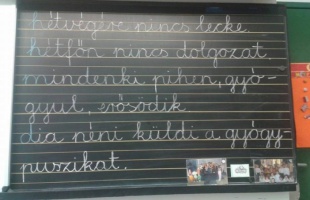 hétvégére nincs lecke.
hétfőn nincs dolgozat,
mindenki pihen, gyó-
gyul, erősödik
dia néni küldi a gyógy-
puszikat.